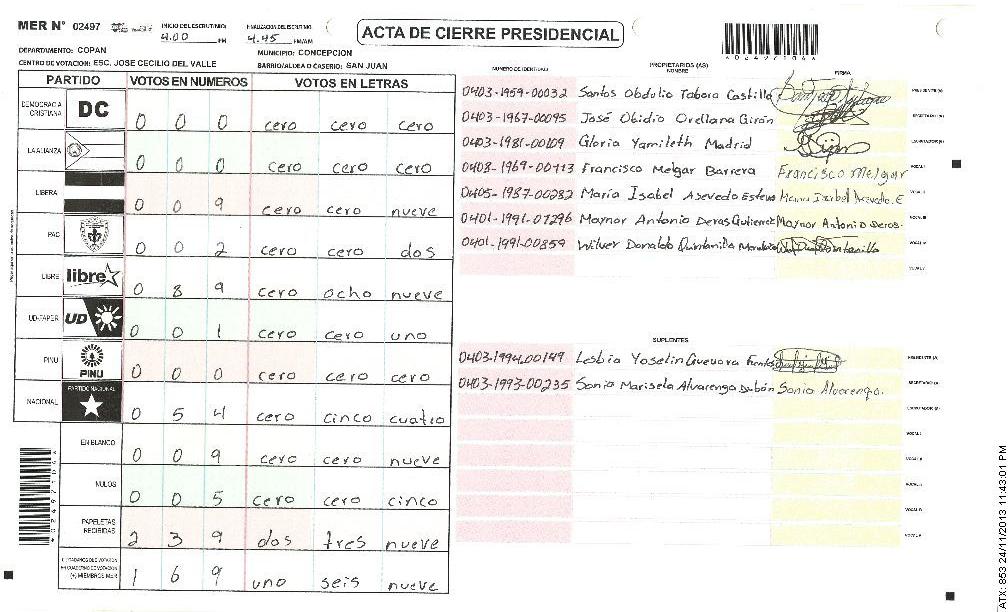 MER N° 02497
INICIO DEL ESCRUTINIO
4:00 PM
FINALIZACION DEL ESCRUTINIO
4:45 PM/AM
ACTA DE CIERRE PRESIDENCIAL
DEPARTAMENTO: COPAN
MUNICIPIO: CONCEPCION
CENTRO DE VOTACION: ESC. JOSE CECILIO DEL VALLE
BARRIO/ALDEA O CASERIO: SAN JUAN
PARTIDO VOTOS EN NUMEROS VOTOS EN LETRAS
DEMOCRACIA CRISTIANA DC 0 0 0 cero cero cero
LA ALIANZA 0 0 0 cero cero cero
LIBERA 0 0 9 cero cero nueve
PAC 0 0 2 cero cero dos
LIBRE libre 0 8 9 cero ocho nueve
UD-FAPER UD 0 0 1 cero cero uno
PINU PINU 0 0 0 cero cero cero
NACIONAL PARTIDO NACIONAL 0 5 4 cero cinco cuatro
EN BLANCO 0 0 9 cero cero nueve
NULOS 0 0 5 cero cero cinco
PAPELETAS RECIBIDAS 2 3 9 dos tres nueve
(+) MIEMBROS MER 1 6 9 uno seis nueve
NUMERO DE IDENTIDAD PROPIETARIOS (AS) NOMBRE FIRMA
0403-1959-00032 Santos Obdulio Tabora Castillo PRESIDENTE (A)
0403-1967-00095 José Obidio Orellana Girón SECRETARIO (A)
0403-1981-00109 Gloria Yamileth Madrid ESCRUTADOR (A)
0408-1969-00113 Francisco Melgar Barrera Francisco Melgar VOCAL I
0405-1987-00282 Maria Isabel Asevedo Maria Isabel Acevedo. E
0401-1991-01296 Maynor Antonio Deras Gutierrez Maynor Antonio Deras.
0401-1991-00859 Wilver Donaldo Quintanilla
SUPLENTES
0403-1994-00149 Lesbia Yoselin Guevara PRESIDENTE (A)
0403-1993-00235 Sonia Marisela Alvarenga Dubón Sonia Alvarenga. SECRETARIO (A)
ESCRUTADOR (A)
ATX: 853 24/11/2013 11:43:01 PM